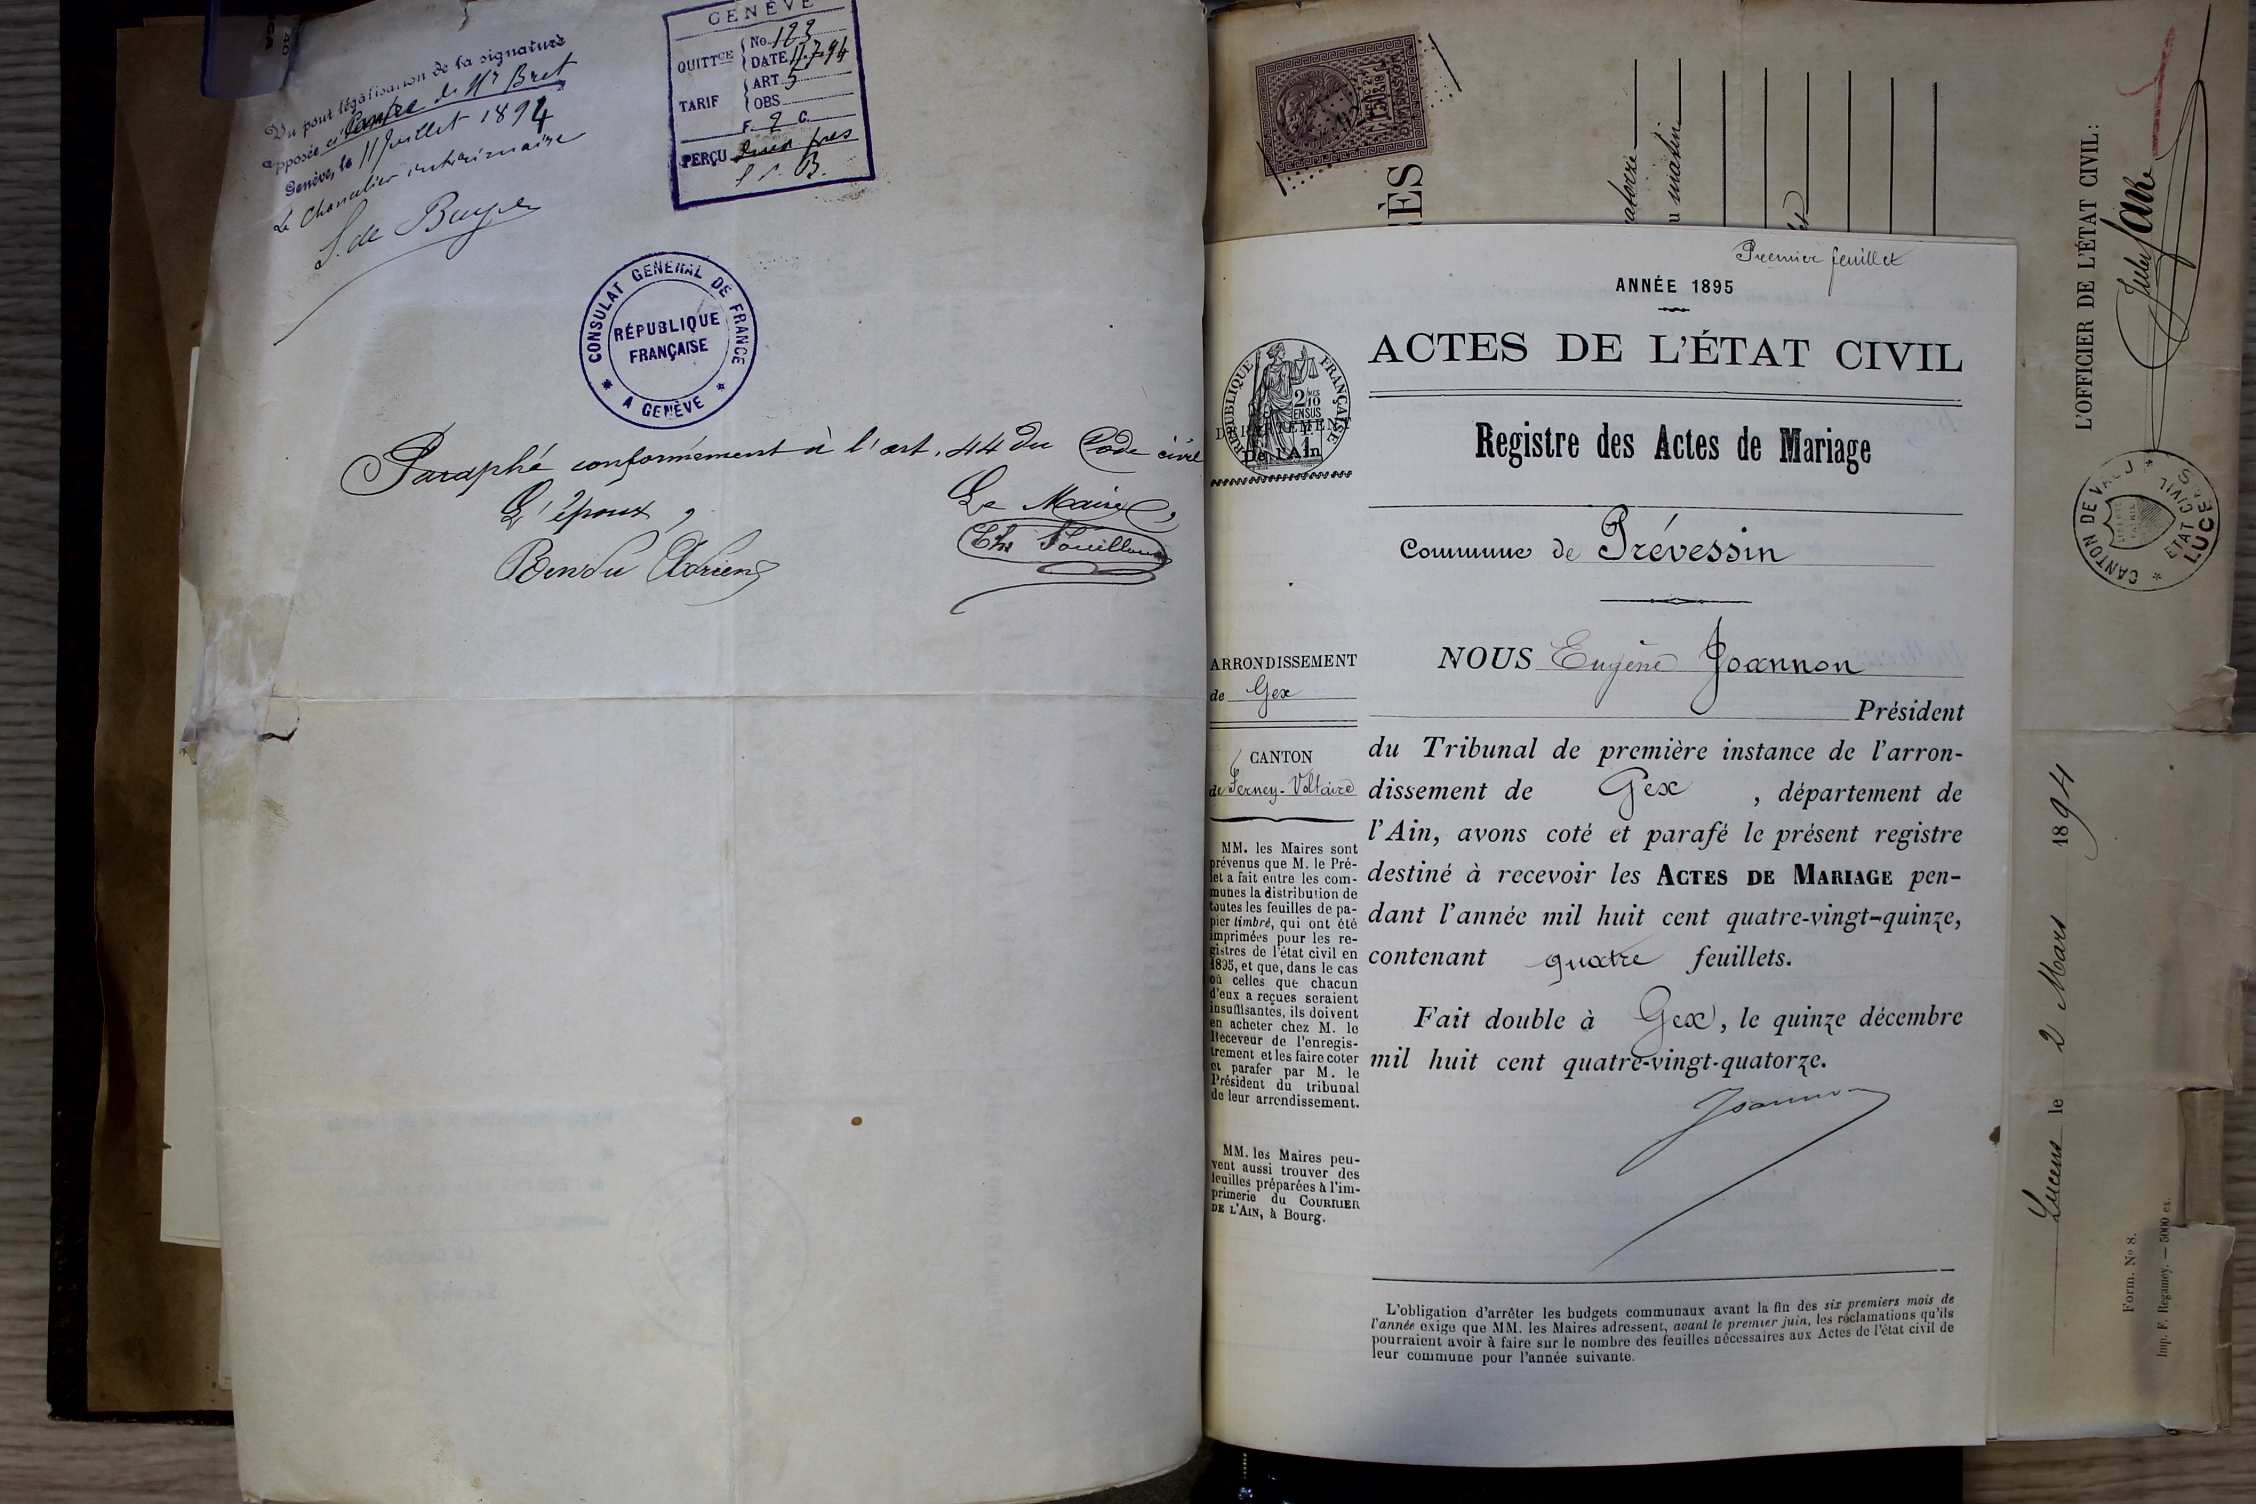 Vu pour légalisation de la signature
apposée ci contre de Mr Bret
Genève, le 11 Juillet 1894
Le Chancelier intérimaire
GENÈVE
QUITTCE
No 123
DATE 11.7.94
ART 5
TARIF
OBS
F. 2 C.
PERÇU
B.
CONSULAT GENERAL DE FRANCE
RÉPUBLIQUE
FRANÇAISE
* A GENÈVE *
Paraphé conformément à l'art. 44 du Code civil
L'époux,
Le Maire,
Adrien
Premier feuillet
ANNÉE 1895
ACTES DE L'ÉTAT CIVIL
RÉPUBLIQUE FRANÇAISE
2 MES
10
EN SUS
DÉPARTEMENT
De l'Ain
Registre des Actes de Mariage
Commune de Prévessin
ARRONDISSEMENT
de Gex
CANTON
de Ferney-Voltaire
MM. les Maires sont
prévenus que M. le Pré-
fet a fait entre les com-
munes la distribution de
toutes les feuilles de pa-
pier timbré, qui ont été
imprimées pour les re-
gistres de l'état civil en
1895, et que, dans le cas
où celles que chacun
d'eux a reçues seraient
insuffisantes, ils doivent
en acheter chez M. le
Receveur de l'enregis-
trement et les faire coter
et parafer par M. le
Président du tribunal
de leur arrondissement.
MM. les Maires peu-
vent aussi trouver des
feuilles préparées à l'im-
primerie du COURRIER
DE L'AIN, à Bourg.
NOUS Eugène Joannon
Président
du Tribunal de première instance de l'arron-
dissement de Gex, département de
l'Ain, avons coté et parafé le présent registre
destiné à recevoir les ACTES DE MARIAGE pen-
dant l'année mil huit cent quatre-vingt-quinze,
contenant quatre feuillets.
Fait double à Gex, le quinze décembre
mil huit cent quatre-vingt-quatorze.
Joannon
L'obligation d'arrêter les budgets communaux avant la fin des six premiers mois de
l'année exige que MM. les Maires adressent, avant le premier juin, les réclamations qu'ils
pourraient avoir à faire sur le nombre des feuilles nécessaires aux Actes de l'état civil de
leur commune pour l'année suivante.
DIMENSION
ÈS
atorze
u matin
L'OFFICIER DE L'ÉTAT CIVIL:
CANTON DE VAUD
ETAT CIVIL
LUCENS
Lucens le 2 Mars 1894
Form. No 8.
Imp. F. Regamey. — 5000 ex.